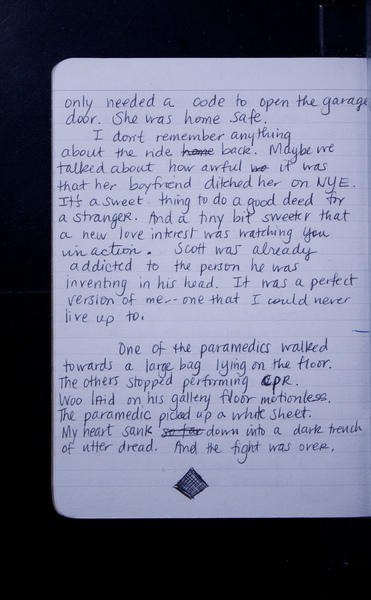 only needed a code to open the garage
door. She was home safe.
I don't remember anything
about the ride home back. Maybe we
talked about how awful it was
that her boyfriend ditched her on NYE.
It's a sweet thing to do a good deed for
a stranger. And a tiny bit sweeter that
a new love interest was watching you
in action. Scott was already
addicted to the person he was
inventing in his head. It was a perfect
version of me-- one that I could never
live up to.
One of the paramedics walked
towards a large bag lying on the floor.
The others stopped performing CPR.
Woo laid on his gallery floor motionless.
The paramedic picked up a white sheet.
My heart sank so far down into a dark trench
of utter dread. And the fight was over.